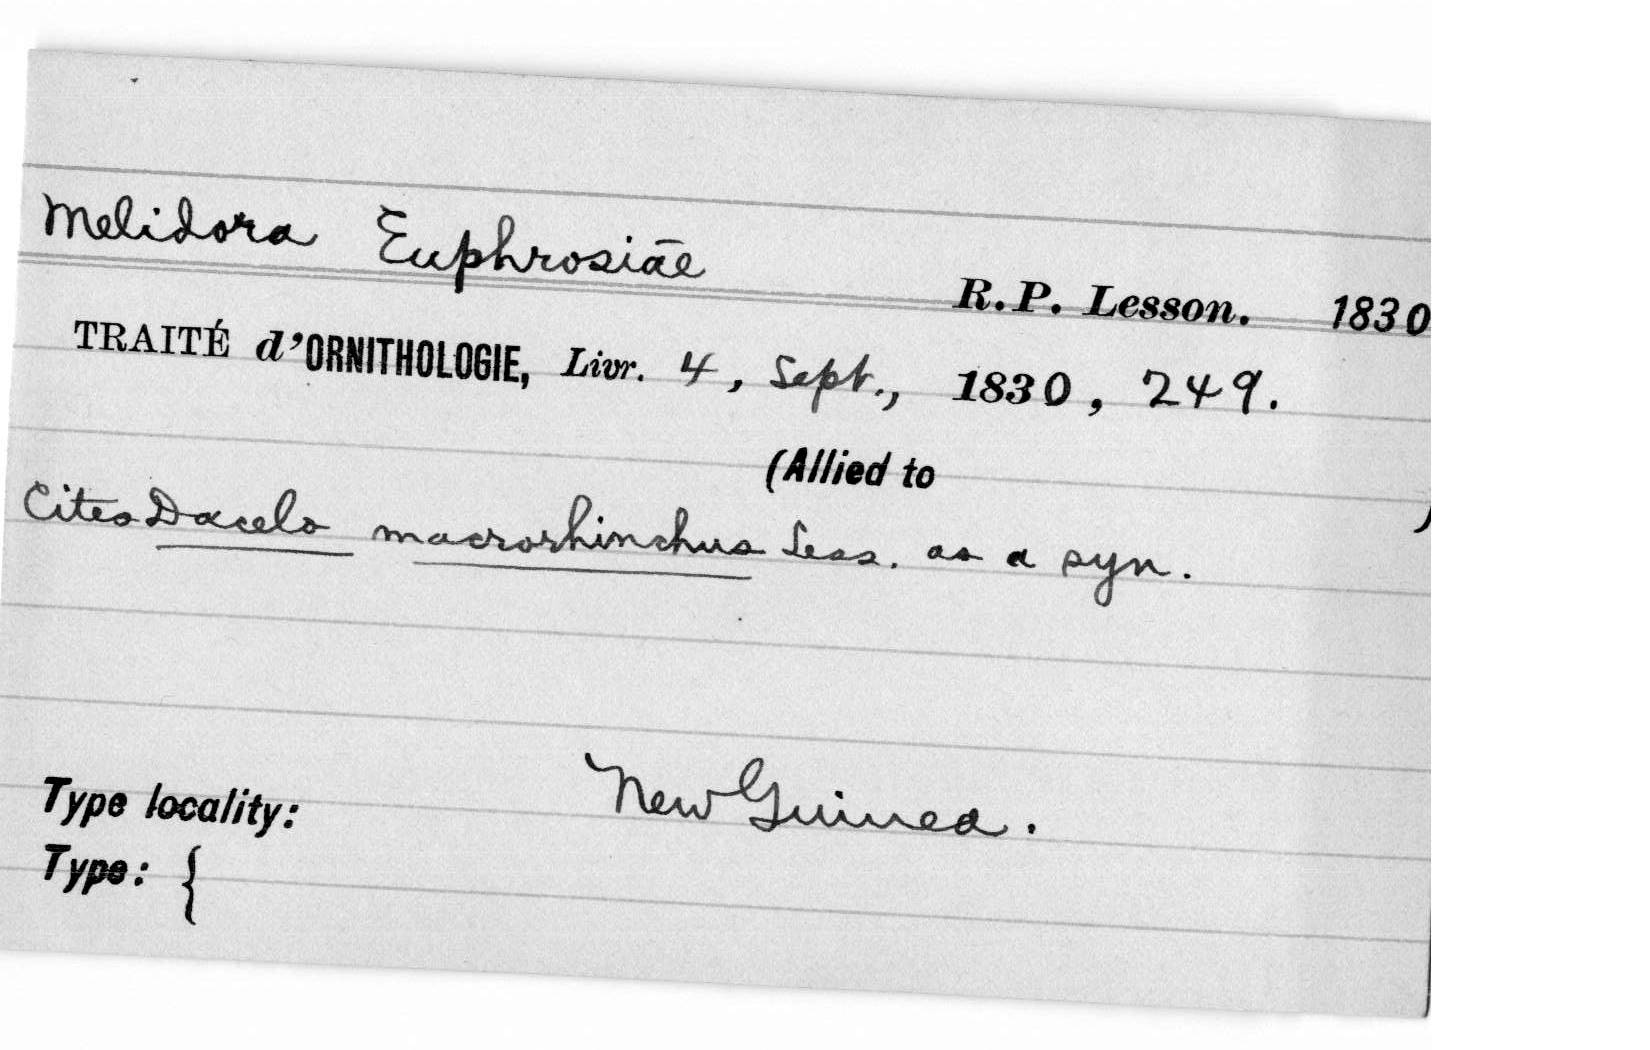 Melidora Euphrosiāe
R.P. Lesson. 1830
TRAITÉ d'ORNITHOLOGIE, Livr. 4, Sept., 1830, 249.
(Allied to )
Cites Dacelo macrorhinchus Less. as a syn.
Type locality: New Guinea.
Type: {